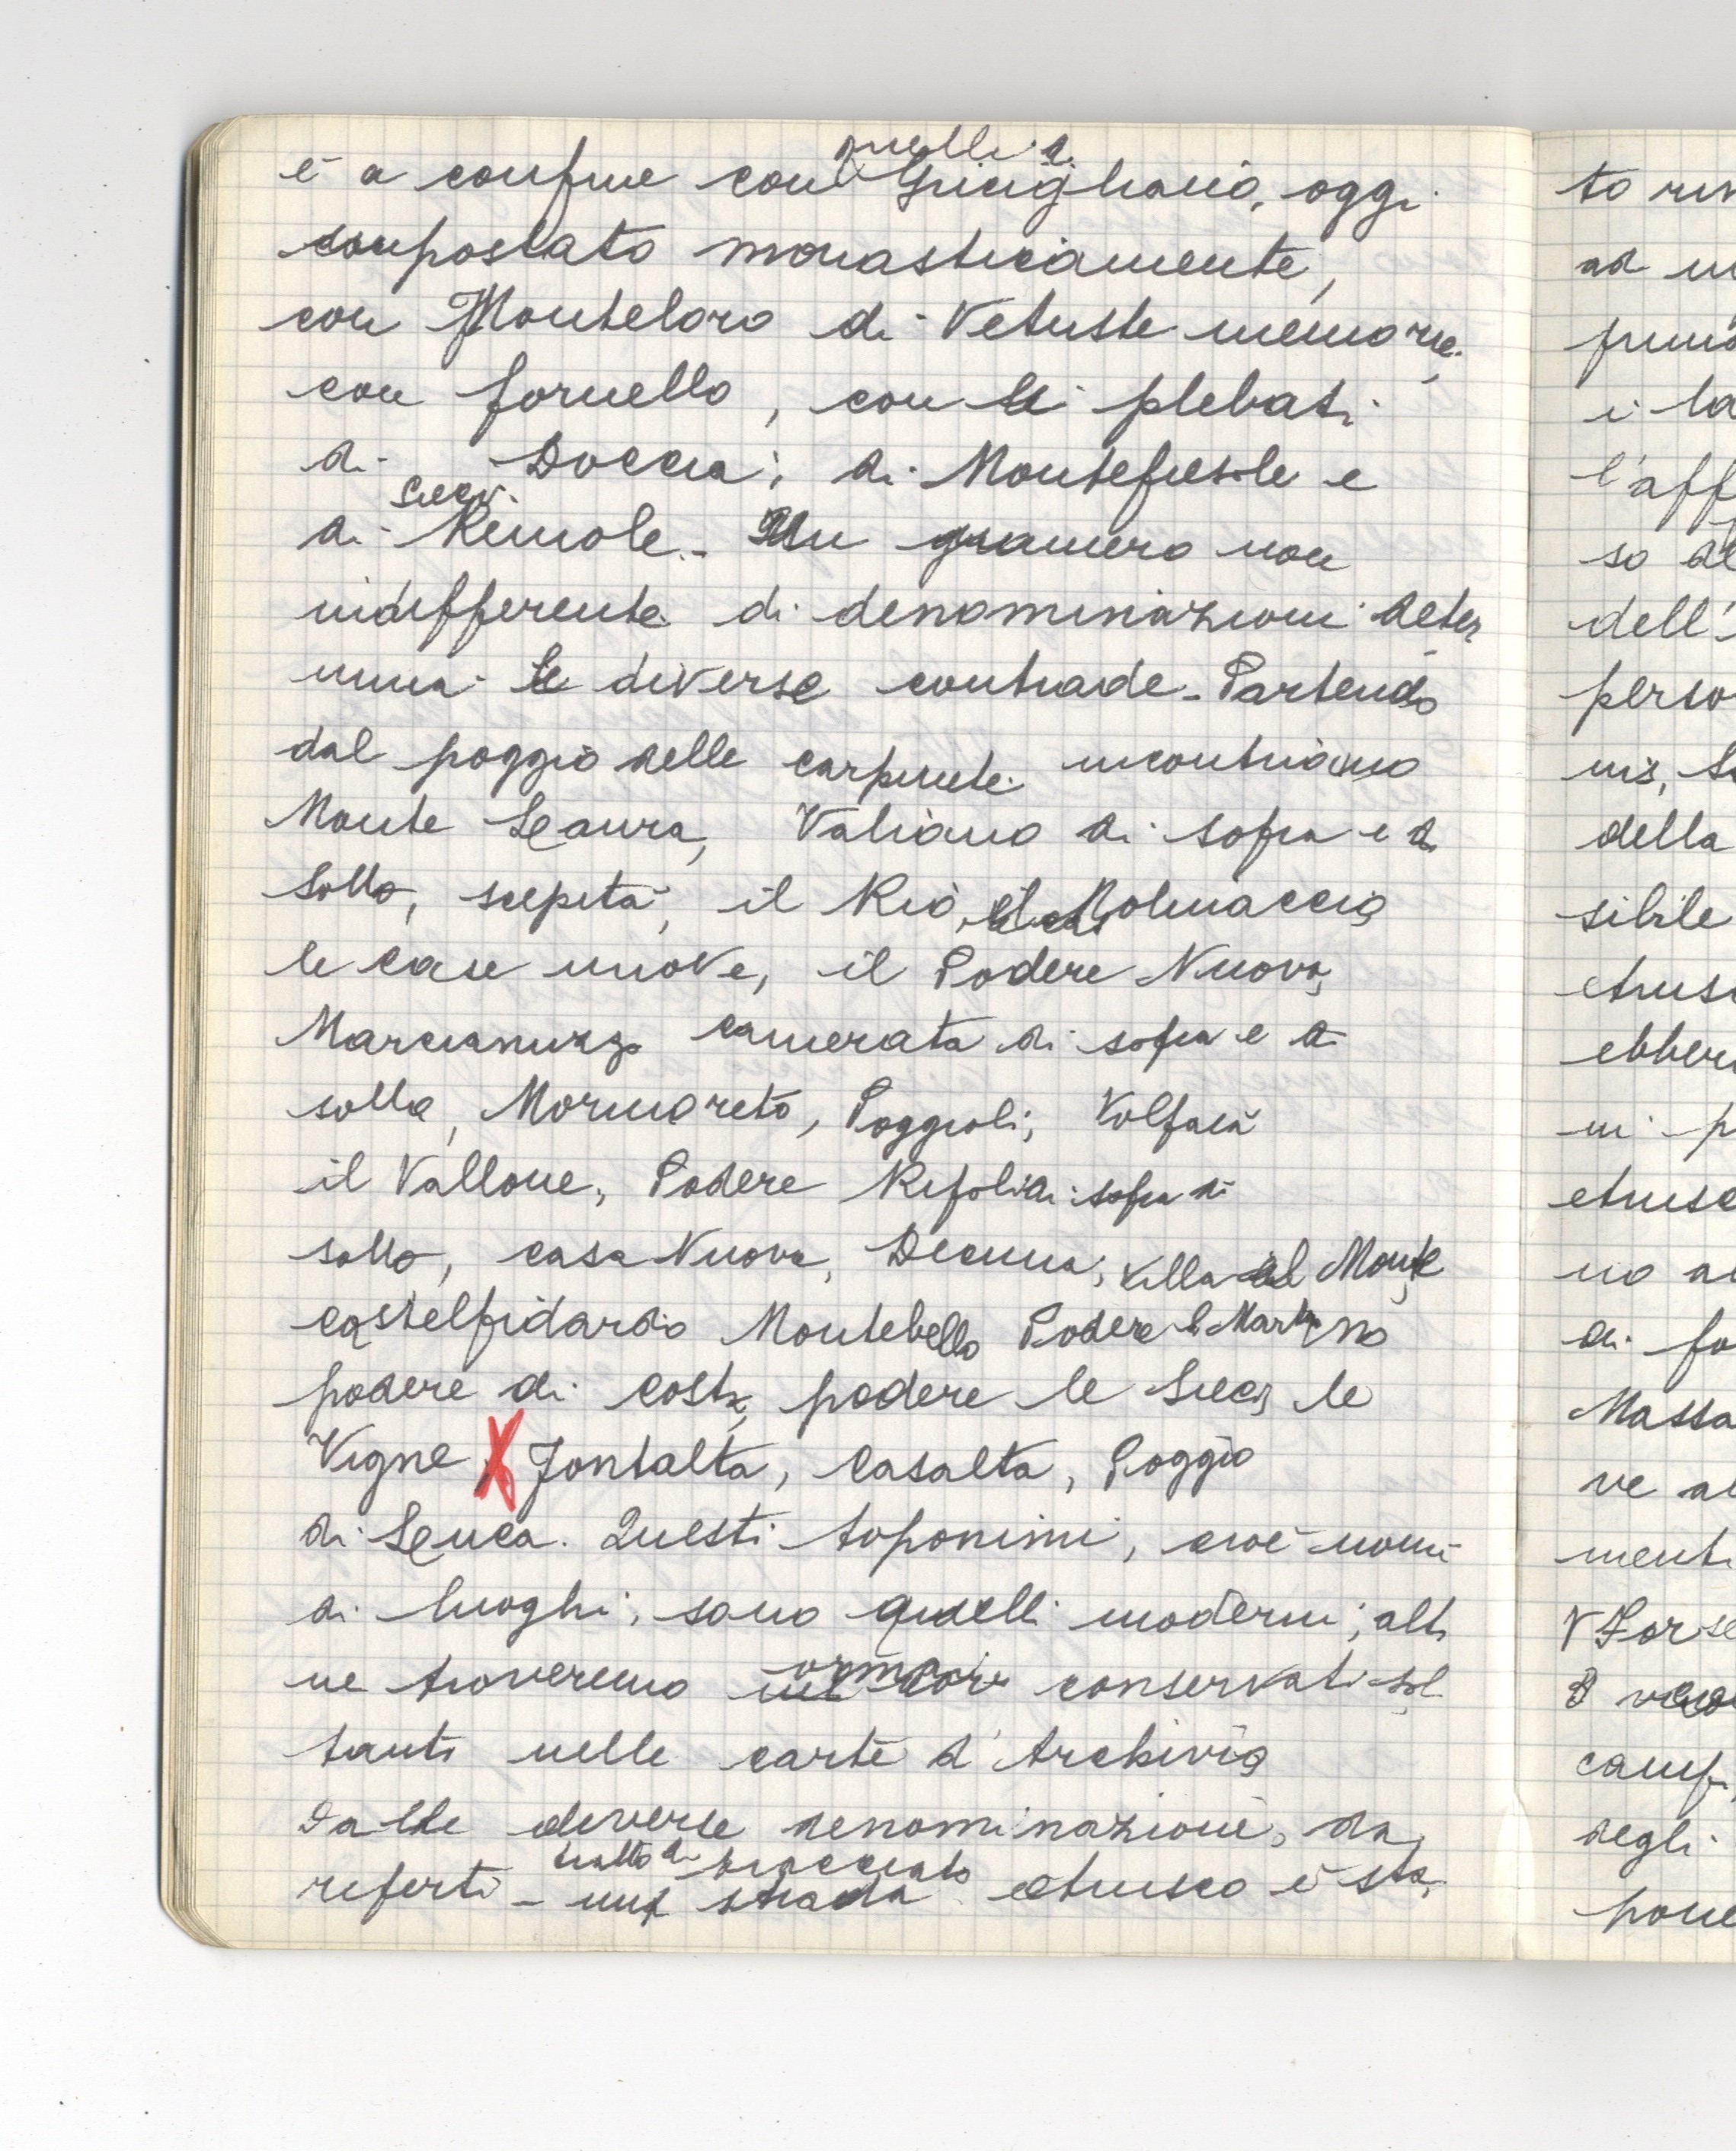 quelli di
è a confine con Gricigliano, oggi
compostato monasticamente,
con Monteloro di Vetuste memorie,
con fornello, con li plebati
di Doccia, di Montefiesole e
di Remole. Un numero non
indifferente di denominazioni deter
mina le diverse contrade - Partendo
dal poggio delle carpinete incontriamo
Monte Leaura, Valiano di sopra e di
Sotto, scepeta, il Rio, il Molinaccio
le case nuove, il Podere Nuovo,
camerata di sopra e di
sotto, Mormoreto, Poggioli, Volfaia
il Vallone, Podere Rifoli di sopra di
sotto, casa Nuova, Decima, Villa il Monte
castelfidardo Montebello Podere il Martino
podere di costa, podere le Sieci, le
Vigne X Fontalta, Casalta, Poggio
di Leuca. Questi toponimi, cioè nomi
di luoghi, sono quelli moderni, altri
ormai
ne troveremo conservati sol
tanto nelle carte d'Archivio
Dalle diverse denominazioni, da
tratto di tracciato
referti - una strada etrusco è sta
to
ad
i la
l'aff
so
dell'
perso
della
sibile
etrus
ebber
etrusc
no
di fo
Massa
ve
menti
degli
pone